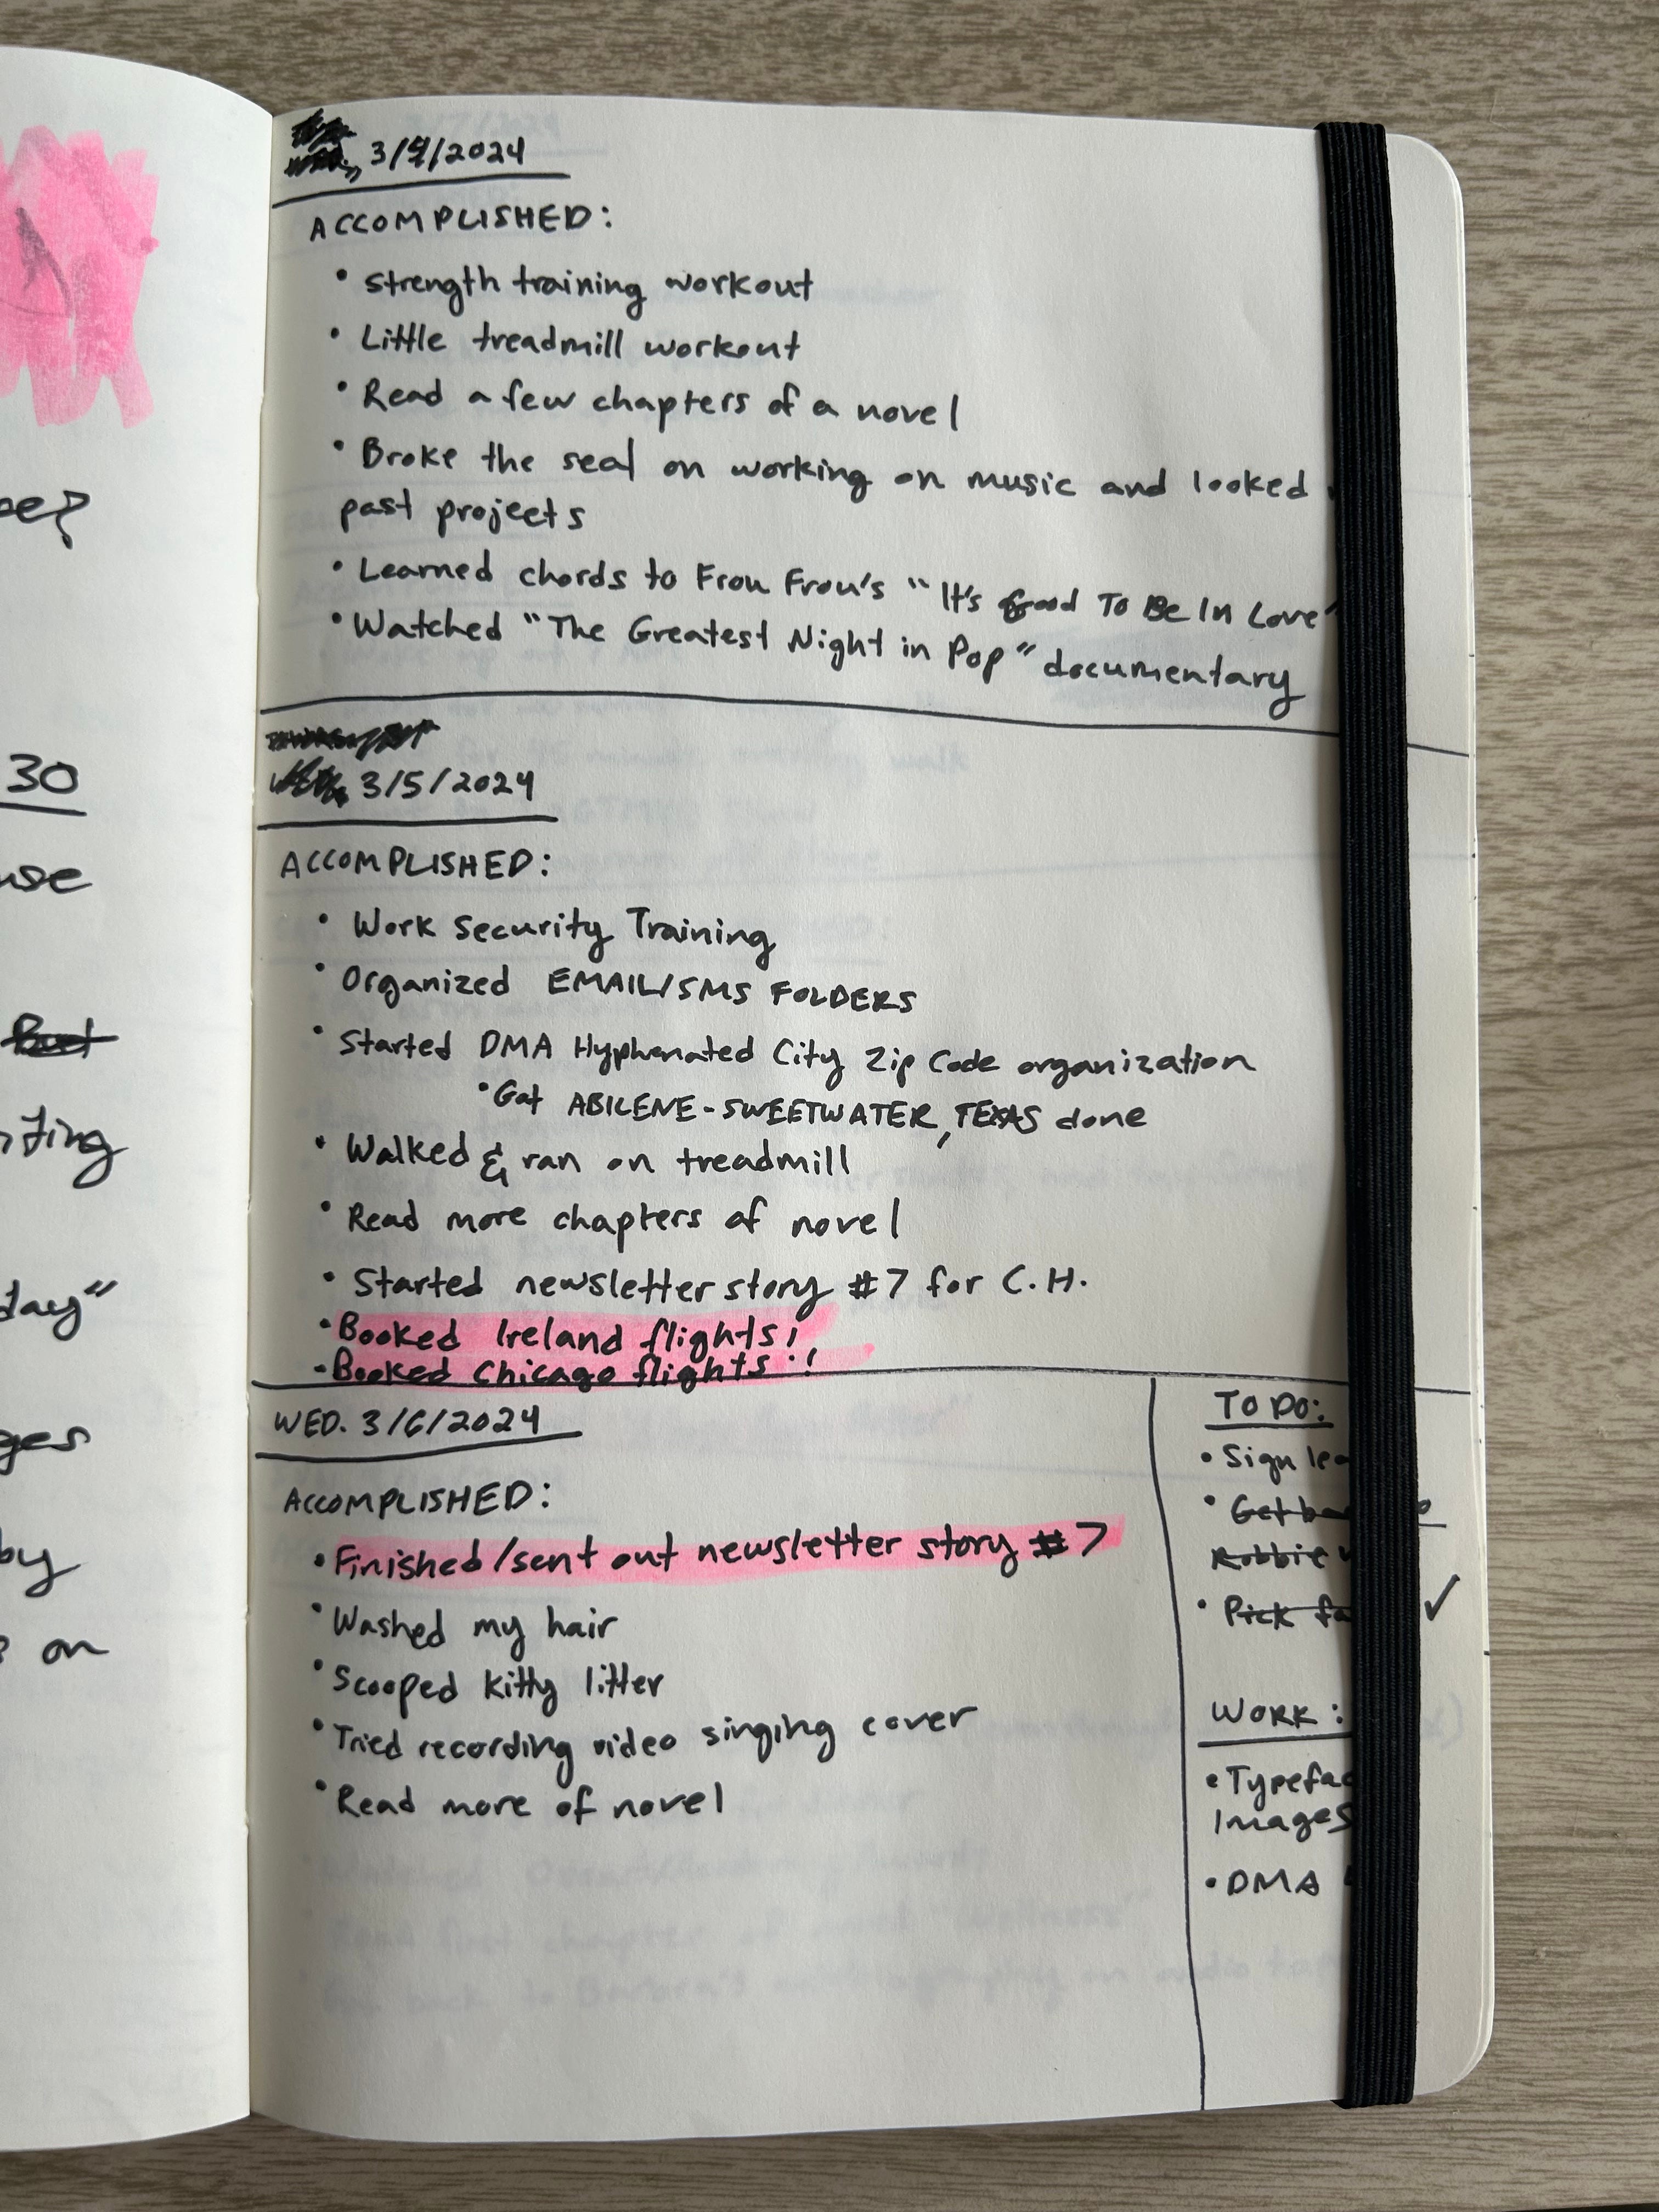 3/4/2024
ACCOMPLISHED:
• Strength training workout
• Little treadmill workout
• Read a few chapters of a novel
• Broke the seal on working on music and looked
past projects
• Learned chords to Frou Frou's "It's Good To Be In Love"
• Watched "The Greatest Night in Pop" documentary
3/5/2024
ACCOMPLISHED:
• Work Security Training
• Organized EMAIL/SMS FOLDERS
• Started DMA Hyphenated City Zip Code organization
• Got ABILENE-SWEETWATER, TEXAS done
• Walked & ran on treadmill
• Read more chapters of novel
• Started newsletter story #7 for C.H.
• Booked Ireland flights!
• Booked Chicago flights!!
WED. 3/6/2024
ACCOMPLISHED:
• Finished/sent out newsletter story #7
• Washed my hair
• Scooped kitty litter
• Tried recording video singing cover
• Read more of novel
TO DO:
• Sign
• Get
Robbie
• Pick ✓
WORK:
•
Images
• DMA
30
But
day"
by
on